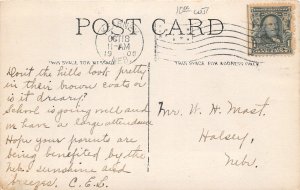 10¢ each
POST CARD
OCT 18
11-AM
1908
NEBR.
THIS SPACE FOR MESSAGE
THIS SPACE FOR ADDRESS ONLY.
Don't the hills look pretty
in their brown coats or
is it dreary?
School is going well and
we have a large attendance
Hope your parents are
being benefited by the
Neb. sunshine and
breezes. C.E.L.
Mr. W. H. Mast.
Halsey,
Nebr.